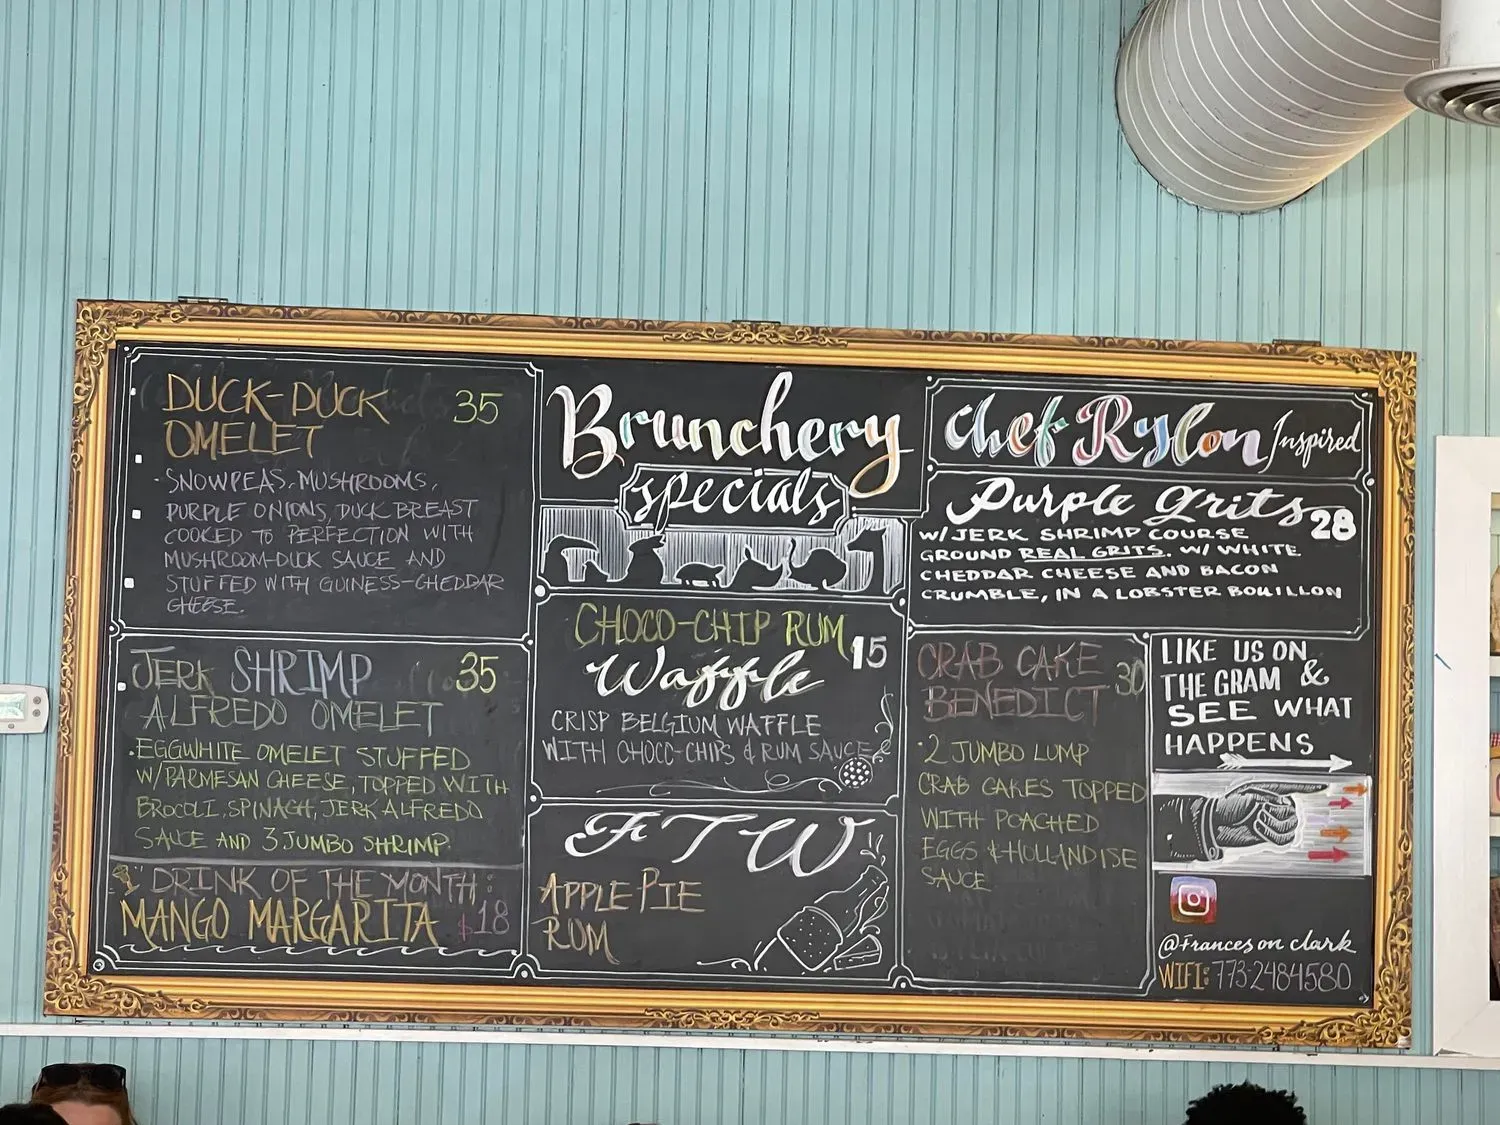 DUCK-DUCK 35
OMELET
· SNOWPEAS, MUSHROOMS,
PURPLE ONIONS, DUCK BREAST
COOKED TO PERFECTION WITH
MUSHROOM-DUCK SAUCE AND
STUFFED WITH GUINESS-CHEDDAR
CHEESE.
JERK SHRIMP 35
ALFREDO OMELET
·EGGWHITE OMELET STUFFED
W/PARMESAN CHEESE, TOPPED WITH
BROCOLI, SPINACH, JERK ALFREDO
SAUCE AND 3 JUMBO SHRIMP.
"DRINK OF THE MONTH:
MANGO MARGARITA $18
Brunchery
specials
CHOCO-CHIP RUM
Waffle 15
CRISP BELGIUM WAFFLE
WITH CHOCO-CHIPS & RUM SAUCE
FTW
APPLE PIE
RUM
Chef Rylon Inspired
Purple Grits 28
W/ JERK SHRIMP COURSE
GROUND REAL GRITS. W/ WHITE
CHEDDAR CHEESE AND BACON
CRUMBLE, IN A LOBSTER BOUILLON
CRAB CAKE 30
BENEDICT
·2 JUMBO LUMP
CRAB CAKES TOPPED
WITH POACHED
EGGS & HOLLANDISE
SAUCE
LIKE US ON
THE GRAM &
SEE WHAT
HAPPENS
@Frances on clark
WIFI: 773-2484580